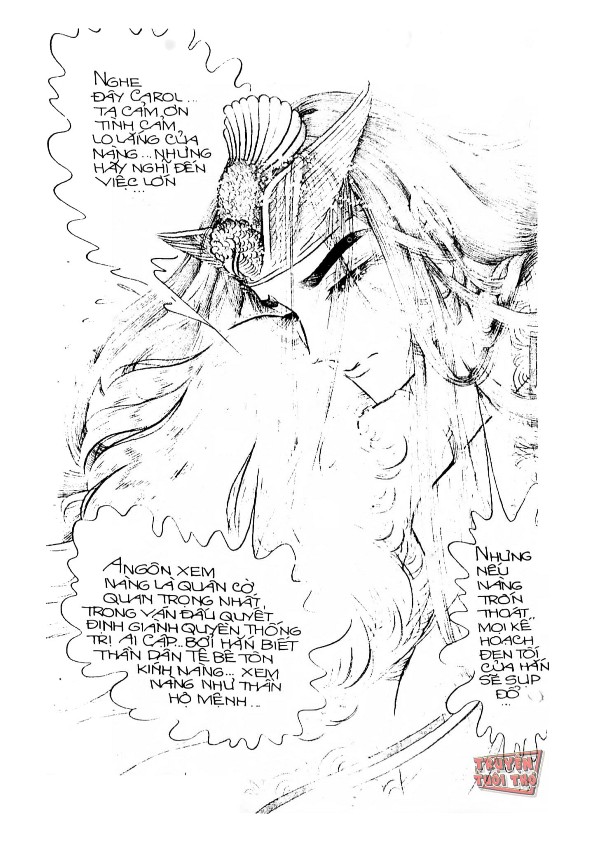 NGHE
ĐÂY CAROL...
TA CẢM ƠN
TÌNH CẢM,
LO LẮNG CỦA
NÀNG...NHƯNG
HÃY NGHĨ ĐẾN
VIỆC LỚN
...
ANGÔN XEM
NÀNG LÀ QUÂN CỜ
QUAN TRỌNG NHẤT
TRONG VÁN ĐẤU QUYẾT
ĐỊNH GIÀNH QUYỀN THỐNG
TRỊ AI CẬP...BỞI HẮN BIẾT
THẦN DÂN TÊ BÊ TÔN
KÍNH NÀNG... XEM
NÀNG NHƯ THẦN
HỘ MỆNH...
NHƯNG
NẾU
NÀNG
TRỐN
THOÁT..
MỌI KẾ
HOẠCH
ĐEN TỐI
CỦA HẮN
SẼ SỤP
ĐỔ
...
TRUYỆN
TUỔI THƠ